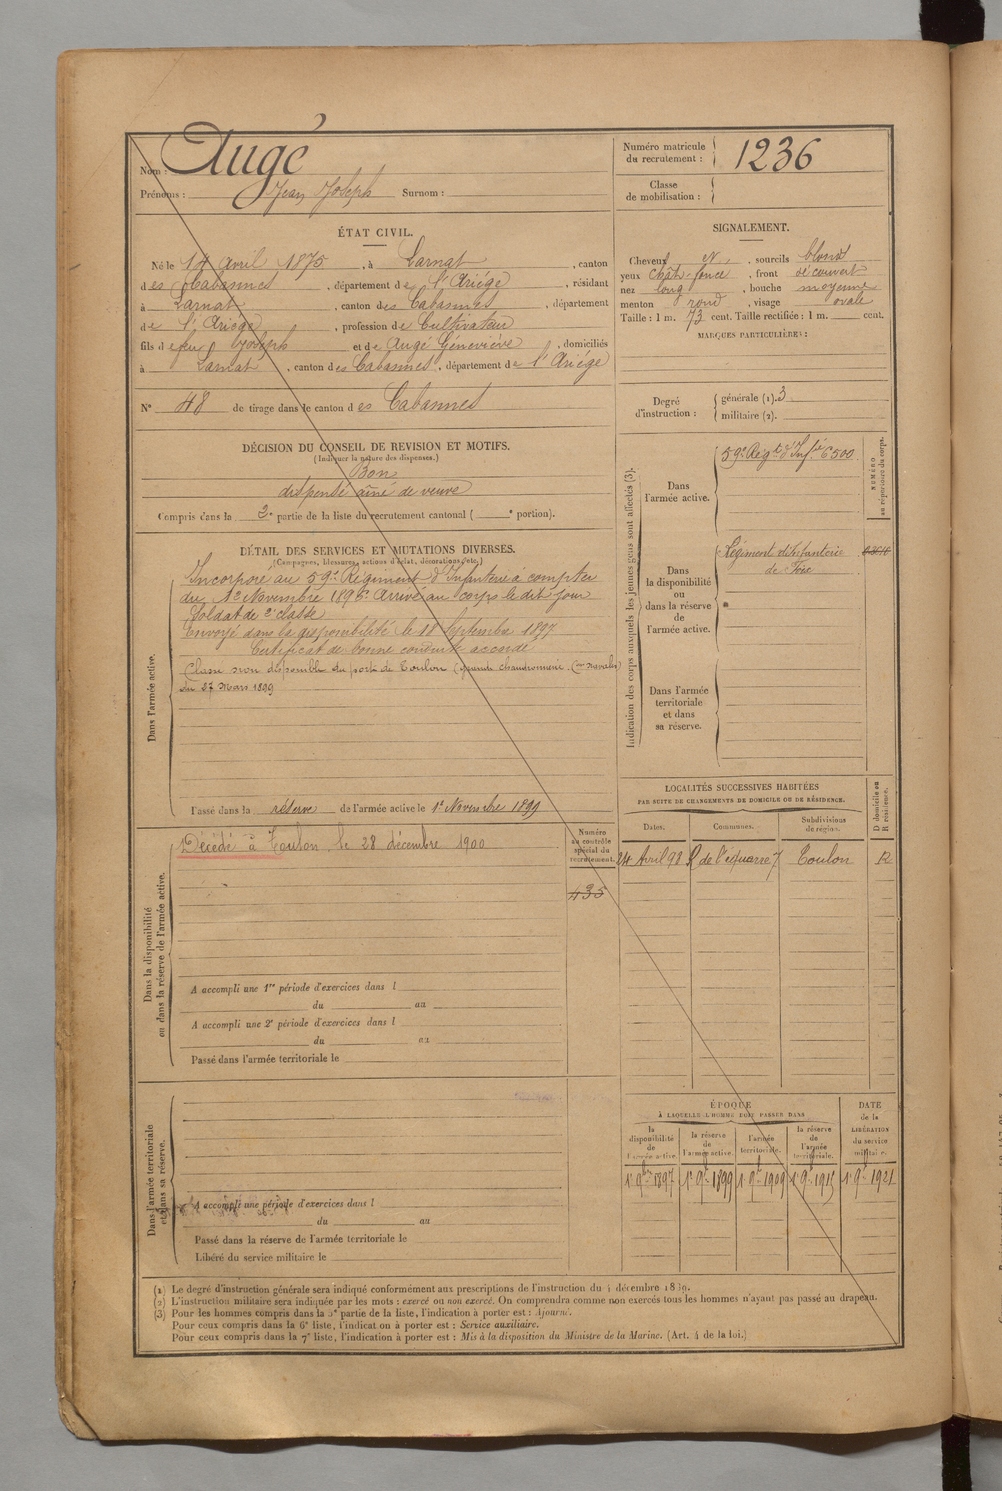 Augé
Nom :
Prénoms : Jean Joseph Surnom :
Numéro matricule du recrutement : 1236
Classe de mobilisation :
ÉTAT CIVIL.
Né le 14 Avril 1875, à Larnat, canton
des Cabannes, département de l'Ariége, résidant
à Larnat, canton des Cabannes, département
de l'Ariége, profession de Cultivateur
fils de feu Joseph et de Augé Géneviève, domiciliés
à Larnat, canton des Cabannes, département de l'Ariége
N° 48 de tirage dans le canton des Cabannes
DÉCISION DU CONSEIL DE REVISION ET MOTIFS.
(Indiquer la nature des dispenses.)
Bon
dispensé aîné de veuve
Compris dans la 2e partie de la liste du recrutement cantonal ( e portion).
DÉTAIL DES SERVICES ET MUTATIONS DIVERSES.
(Campagnes, blessures, actions d'éclat, décorations, etc.)
Dans l'armée active.
Incorporé au 59e Régiment d'Infanterie à compter
du Novembre 1896 Arrivé au corps le dit jour
Soldat de 2e classe
Envoyé dans la disponibilité le 18 Septembre 1897
Certificat de bonne conduite accordé
Classé non disponible du port de Toulon (
du 27 Mars 1899
Passé dans la réserve de l'armée active le 1er Novembre 1899
Dans la disponibilité ou dans la réserve de l'armée active.
Décédé à Toulon, le 28 décembre 1900
Numéro au contrôle spécial du recrutement.
435
A accompli une 1re période d'exercices dans l
du au
A accompli une 2e période d'exercices dans l
du au
Passé dans l'armée territoriale le
Dans l'armée territoriale et dans sa réserve.
A accompli une période d'exercices dans l
du au
Passé dans la réserve de l'armée territoriale le
Libéré du service militaire le
SIGNALEMENT.
Cheveux N., sourcils blond
yeux chât. foncé, front découvert
nez long, bouche moyenne
menton rond, visage ovale
Taille : 1 m. 73 cent. Taille rectifiée : 1 m. cent.
MARQUES PARTICULIÈRES :
Degré d'instruction : générale (1). 3
militaire (2).
Indication des corps auxquels les jeunes gens sont affectés (3).
NUMÉRO au répertoire du corps.
Dans l'armée active.
59e Régt d'Infie 6500
Dans la disponibilité ou dans la réserve de l'armée active.
Régiment d'Infanterie
de Foix
Dans l'armée territoriale et dans sa réserve.
LOCALITÉS SUCCESSIVES HABITÉES
PAR SUITE DE CHANGEMENTS DE DOMICILE OU DE RÉSIDENCE.
D domicile ou R résidence.
Dates. Communes. Subdivisions de région.
24 Avril 98 R. de l'équerre 7 Toulon R
ÉPOQUE
À LAQUELLE L'HOMME DOIT PASSER DANS
DATE de la LIBÉRATION du service militaire.
la disponibilité de l'armée active. la réserve de l'armée active. l'armée territoriale. la réserve de l'armée territoriale.
1er 9bre 1897 1er 9bre 1899 1er 9bre 1909 1er 9bre 1915 1er 9bre 1921
(1) Le degré d'instruction générale sera indiqué conformément aux prescriptions de l'instruction du 4 décembre 1889.
(2) L'instruction militaire sera indiquée par les mots : exercé ou non exercé. On comprendra comme non exercés tous les hommes n'ayant pas passé au drapeau.
(3) Pour les hommes compris dans la 5e partie de la liste, l'indication à porter est : Ajourné.
Pour ceux compris dans la 6e liste, l'indication à porter est : Service auxiliaire.
Pour ceux compris dans la 7e liste, l'indication à porter est : Mis à la disposition du Ministre de la Marine. (Art. 4 de la loi.)